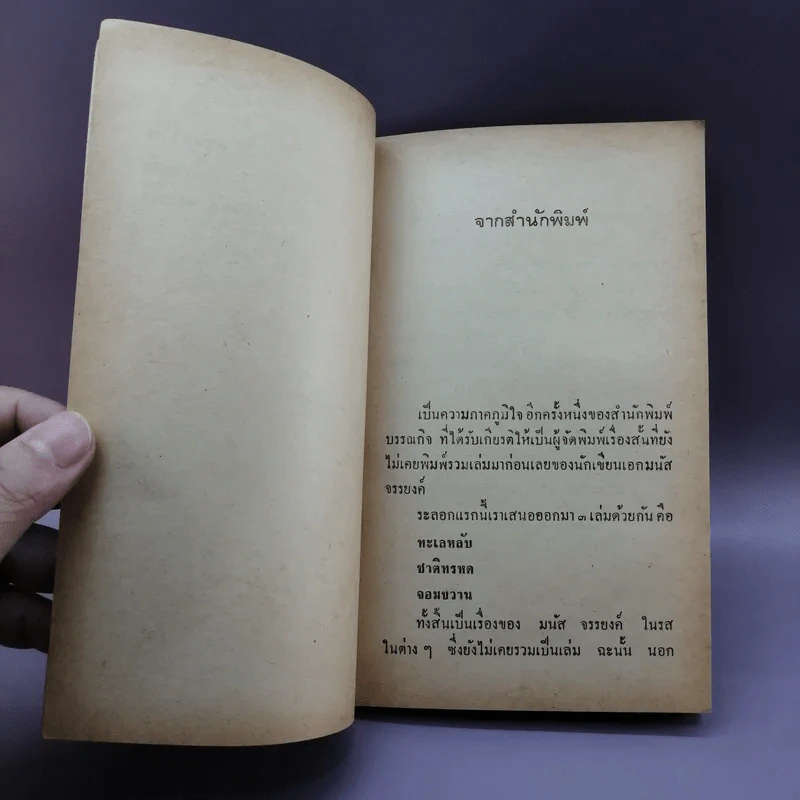 จากสำนักพิมพ์
เป็นความภาคภูมิใจ อีกครั้งหนึ่งของสำนักพิมพ์
บรรณกิจ ที่ได้รับเกียรติให้เป็นผู้จัดพิมพ์เรื่องสั้นที่ยัง
ไม่เคยพิมพ์รวมเล่มมาก่อนเลยของนักเขียนเอกมนัส
จรรยงค์
ระลอกแรกนี้เราเสนอออกมา ๓ เล่มด้วยกัน คือ
ทะเลหลับ
ชาติทรหด
จอมขวาน
ทั้งสิ้นเป็นเรื่องของ มนัส จรรยงค์ ในรส
ในต่าง ๆ ซึ่งยังไม่เคยรวมเป็นเล่ม ฉะนั้น นอก